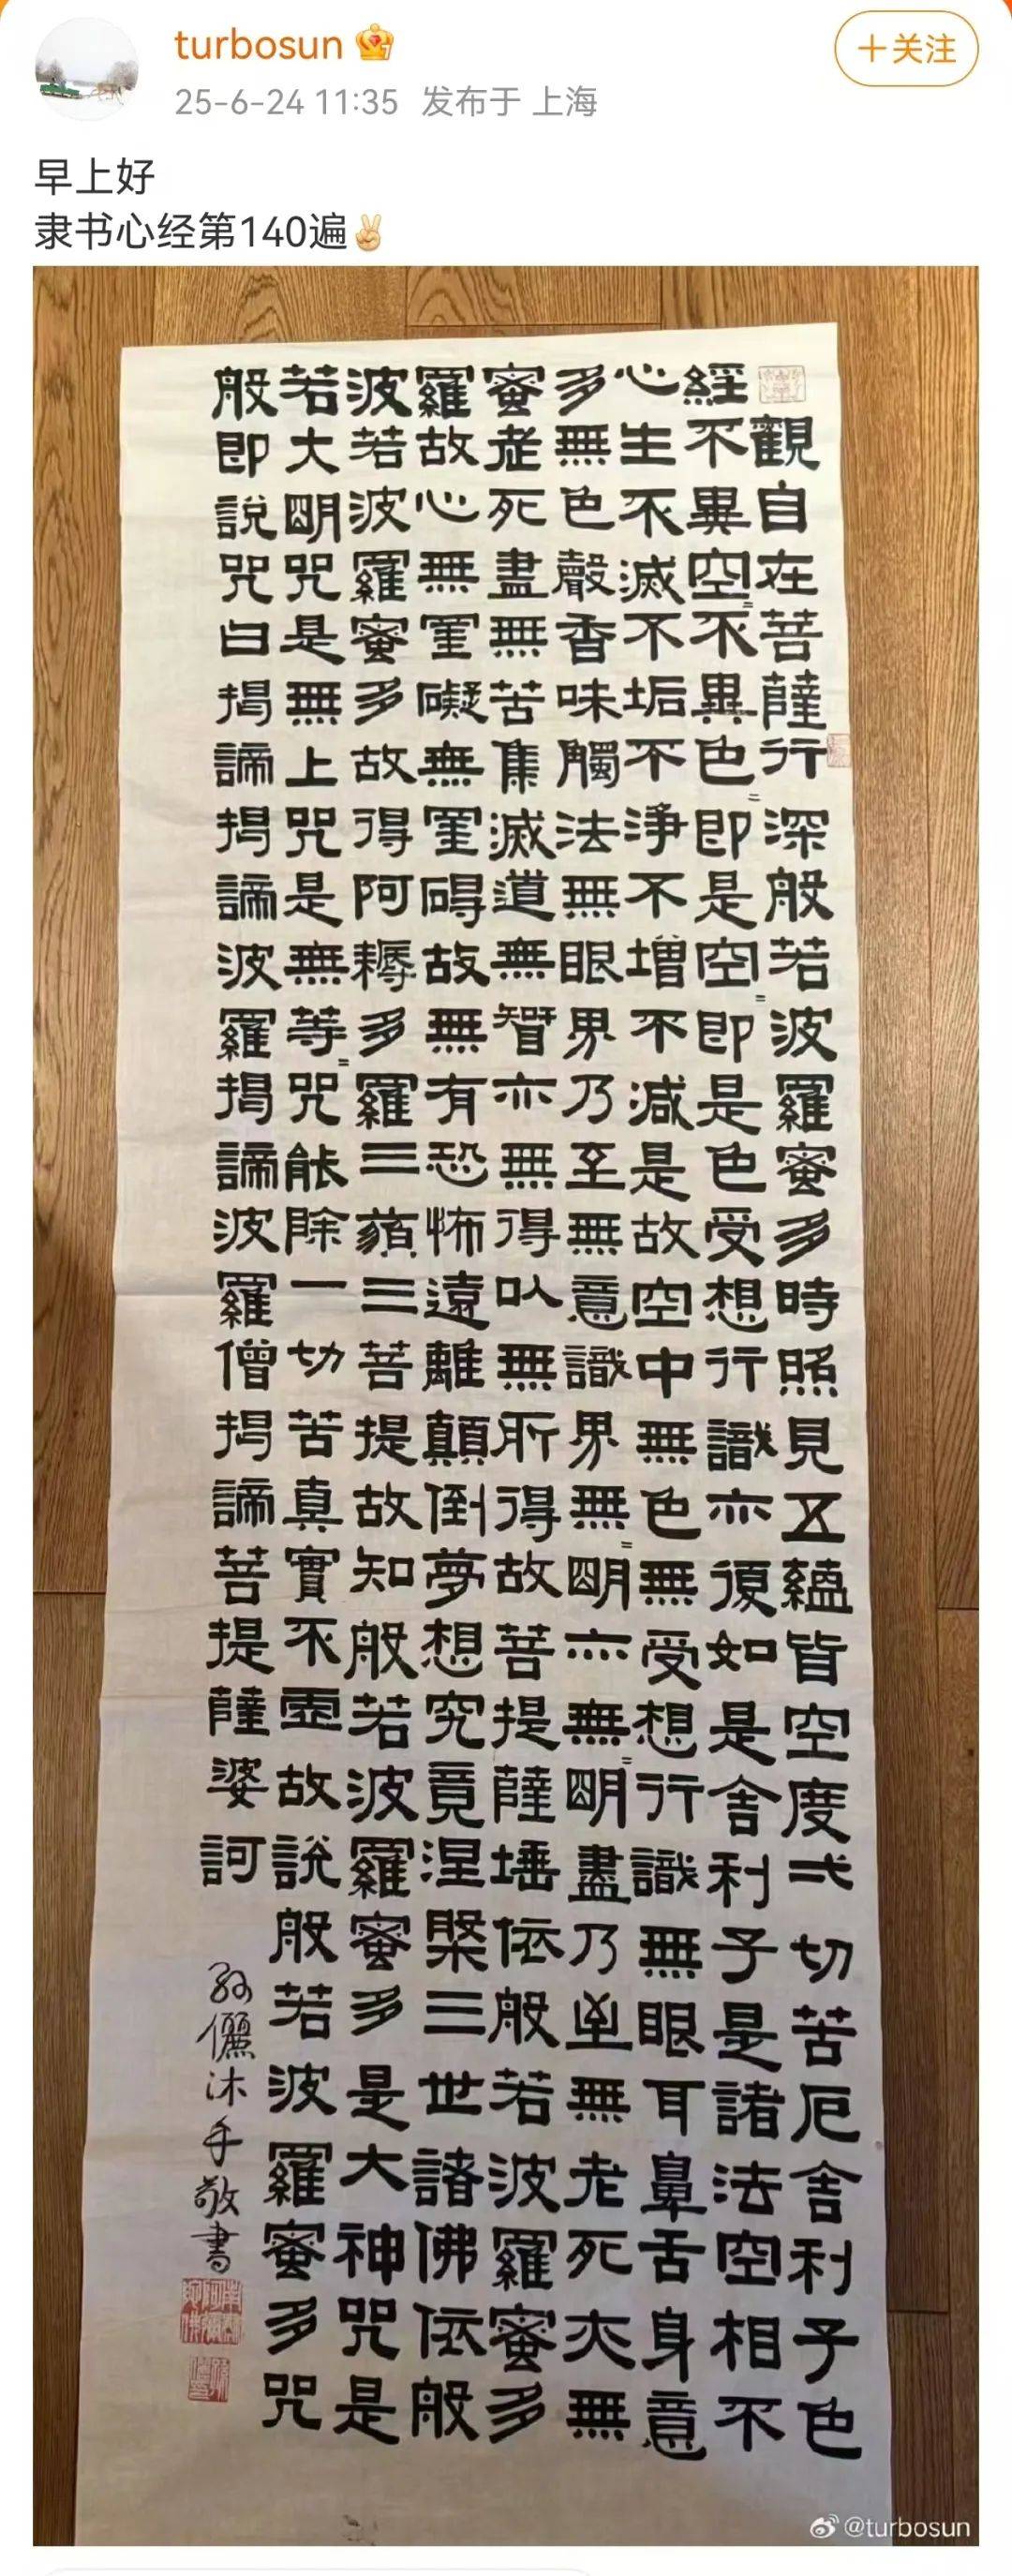 turbosun
+关注
25-6-24 11:35 发布于 上海
早上好
隶书心经第140遍✌🏻
般若波羅蜜多心經
觀自在菩薩行深般若波羅蜜多時照見五蘊皆空度弌切苦厄舍利子色
不異空=不異色=即是空=即是色受想行識亦復如是舍利子是諸法空相不
生不滅不垢不淨不增不減是故空中無色無受想行識無眼耳鼻舌身意
無色聲香味觸法無眼界乃至無意識界無=明亦無=明盡乃至無老死亦無
老死盡無苦集滅道無智亦無得以無所得故菩提薩埵依般若波羅蜜多
故心無罣礙無罣碍故無有恐怖遠離顛倒夢想究竟涅槃三世諸佛依般
若波羅蜜多故得阿耨多羅三藐三菩提故知般若波羅蜜多是大神咒是
大明咒是無上咒是無等=咒能除一切苦真實不虛故說般若波羅蜜多咒
即說咒曰揭諦揭諦波羅揭諦波羅僧揭諦菩提薩婆訶
孫儷沐手敬書
南無阿彌陀佛
@turbosun